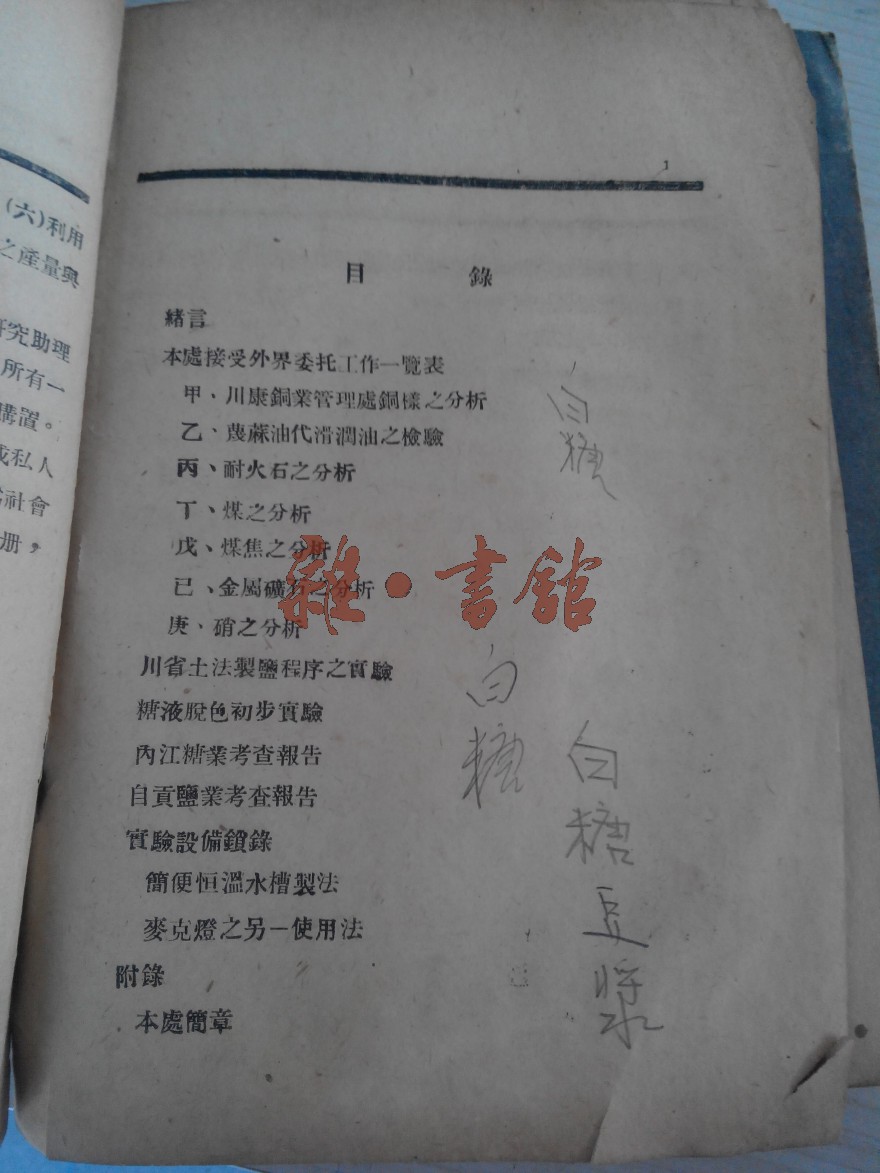 (六)利用
之產量與
究助理
所有一
購置。
私人
社會
册，
1
目錄
緒言
本處接受外界委托工作一覽表
甲、川康銅業管理處銅樣之分析
乙、蓖蔴油代滑潤油之檢驗
丙、耐火石之分析
丁、煤之分析
戊、煤焦之分析
已、金屬礦石之分析
庚、硝之分析
川省土法製鹽程序之實驗
糖液脫色初步實驗
內江糖業考查報告
自貢鹽業考查報告
實驗設備鎖錄
簡便恒溫水槽製法
麥克燈之另一使用法
附錄
本處簡章
白糖
白糖
白糖豆漿
雜·書館